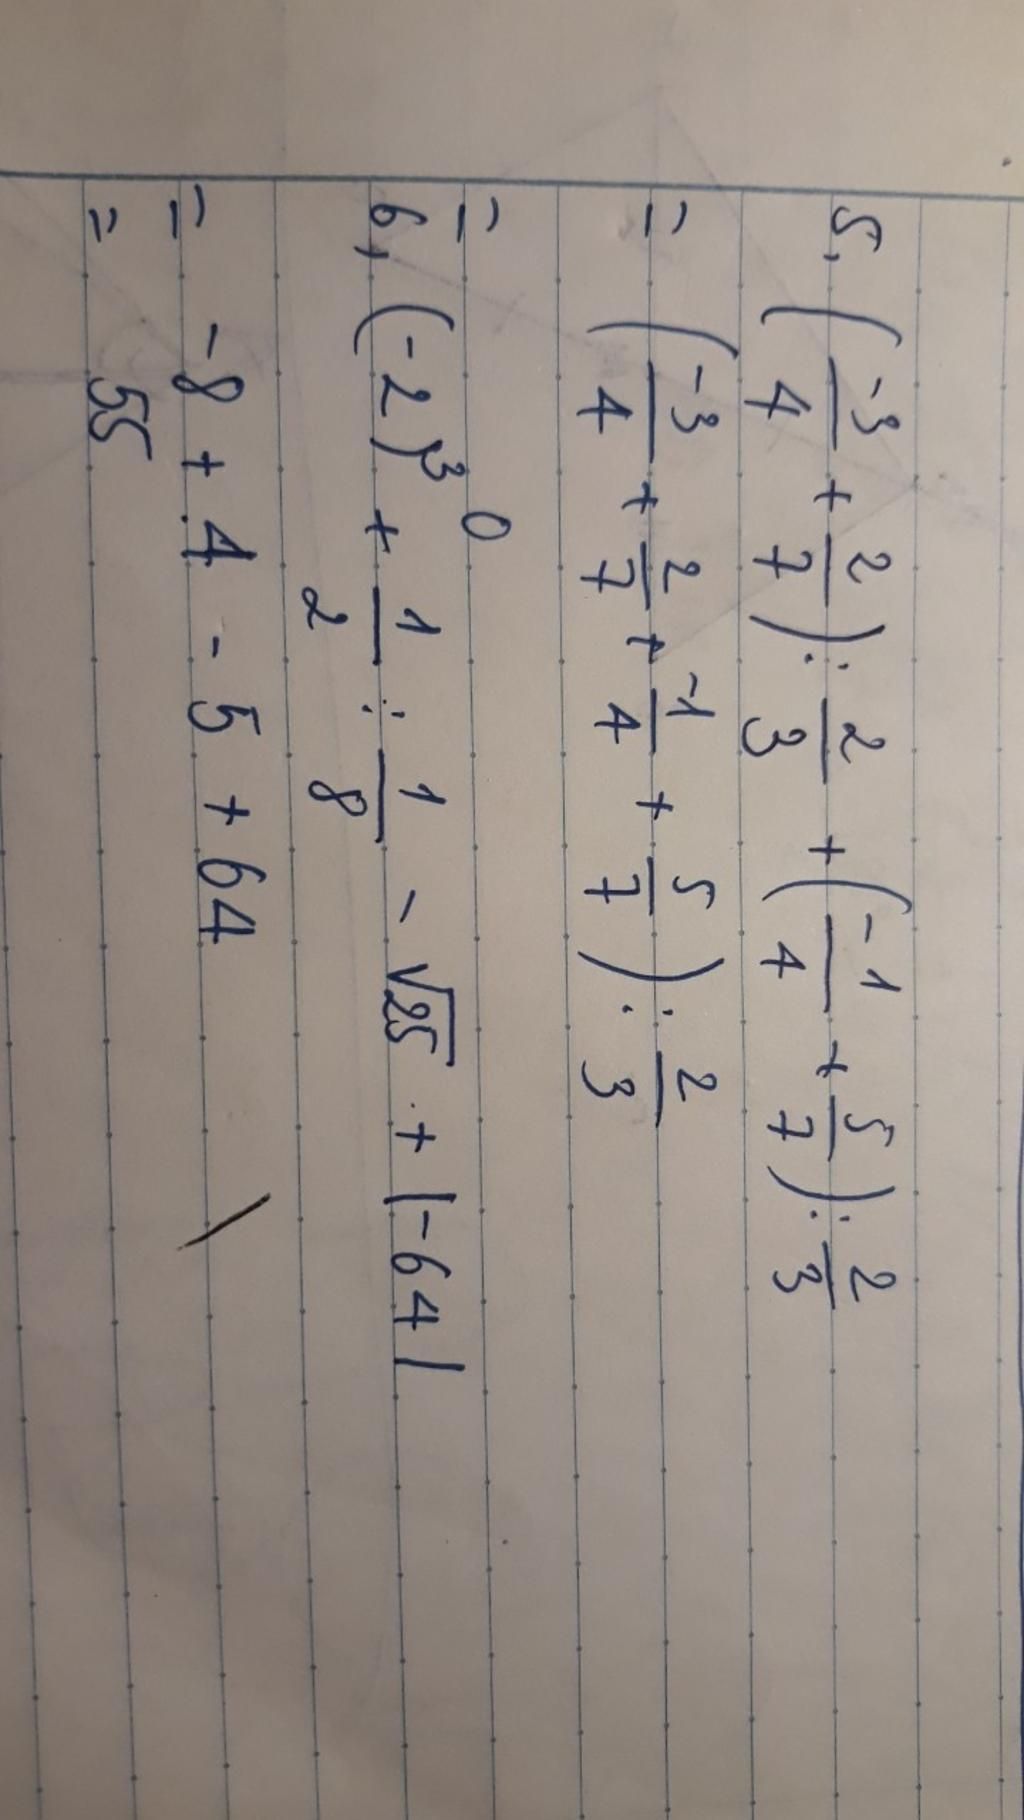 5, (-3/4 + 2/7) : 2/3 + (-1/4 + 5/7) : 2/3
= (-3/4 + 2/7 + -1/4 + 5/7) : 2/3
= 0
6, (-2)³ + 1/2 : 1/8 - √25 + |-64|
= -8 + 4 - 5 + 64
= 55